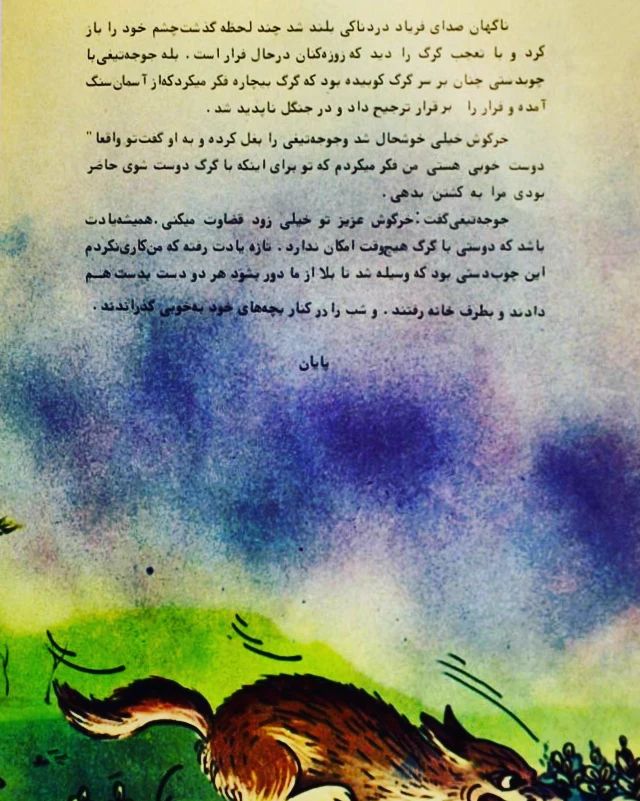 ناگهان صدای فریاد دردناکی بلند شد چند لحظه گذشت چشم خود را باز
کرد و با تعجب گرگ را دید که زوزه‌کنان درحال فرار است . بله جوجه‌تیغی با
چوبدستی چنان بر سر گرگ کوبیده بود که گرگ بیچاره فکر میکرد که از آسمان سنگ
آمده و فرار را برقرار ترجیح داد و در جنگل ناپدید شد .
خرگوش خیلی خوشحال شد وجوجه‌تیغی را بغل کرده و به او گفت تو واقعا "
دوست خوبی هستی من فکر میکردم که تو برای اینکه با گرگ دوست شوی حاضر
بودی مرا به کشتن بدهی .
جوجه‌تیغی گفت : خرگوش عزیز تو خیلی زود قضاوت میکنی . همیشه یادت
باشد که دوستی با گرگ هیچوقت امکان ندارد . تازه یادت رفته که من کاری نکردم
این چوب‌دستی بود که وسیله شد تا بلا از ما دور بشود هر دو دست بدست هم
دادند و بطرف خانه رفتند . و شب را در کنار بچه‌های خود به‌خوبی گذراندند .
پایان